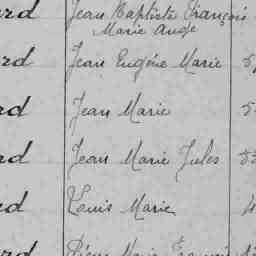 rd Jean Baptiste François
Marie Ange
rd Jean Eugène Marie
rd Jean Marie 5
rd Jean Marie Jules
rd Louis Marie
rd Pierre Marie François